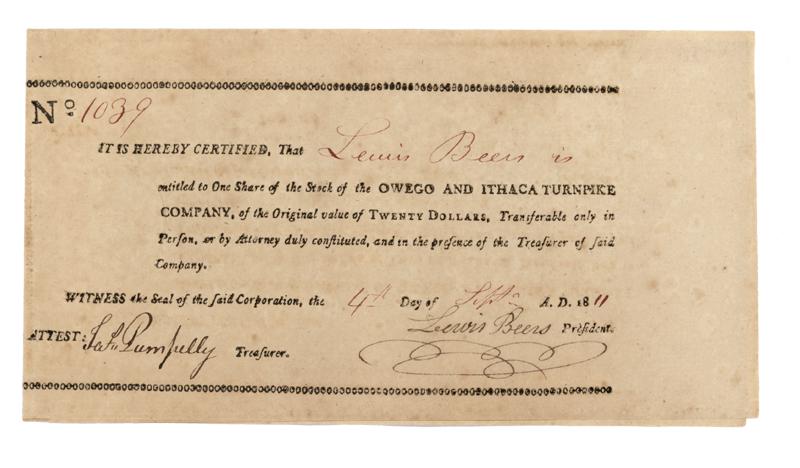 Nº. 1039
IT IS HEREBY CERTIFIED, That Lewis Beers is
entitled to One Share of the Stock of the OWEGO AND ITHACA TURNPIKE
COMPANY, of the Original value of TWENTY DOLLARS, Transferable only in
Person, or by Attorney duly conſtituted, and in the preſence of the Treaſurer of ſaid
Company.
WITNESS the Seal of the ſaid Corporation, the 4th Day of Sept. A. D. 1811
Lewis Beers Preſident.
ATTEST: Pumpelly Treaſurer.